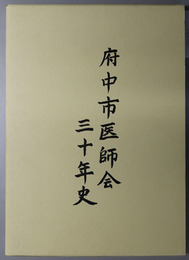 府中市医師会
三十年史